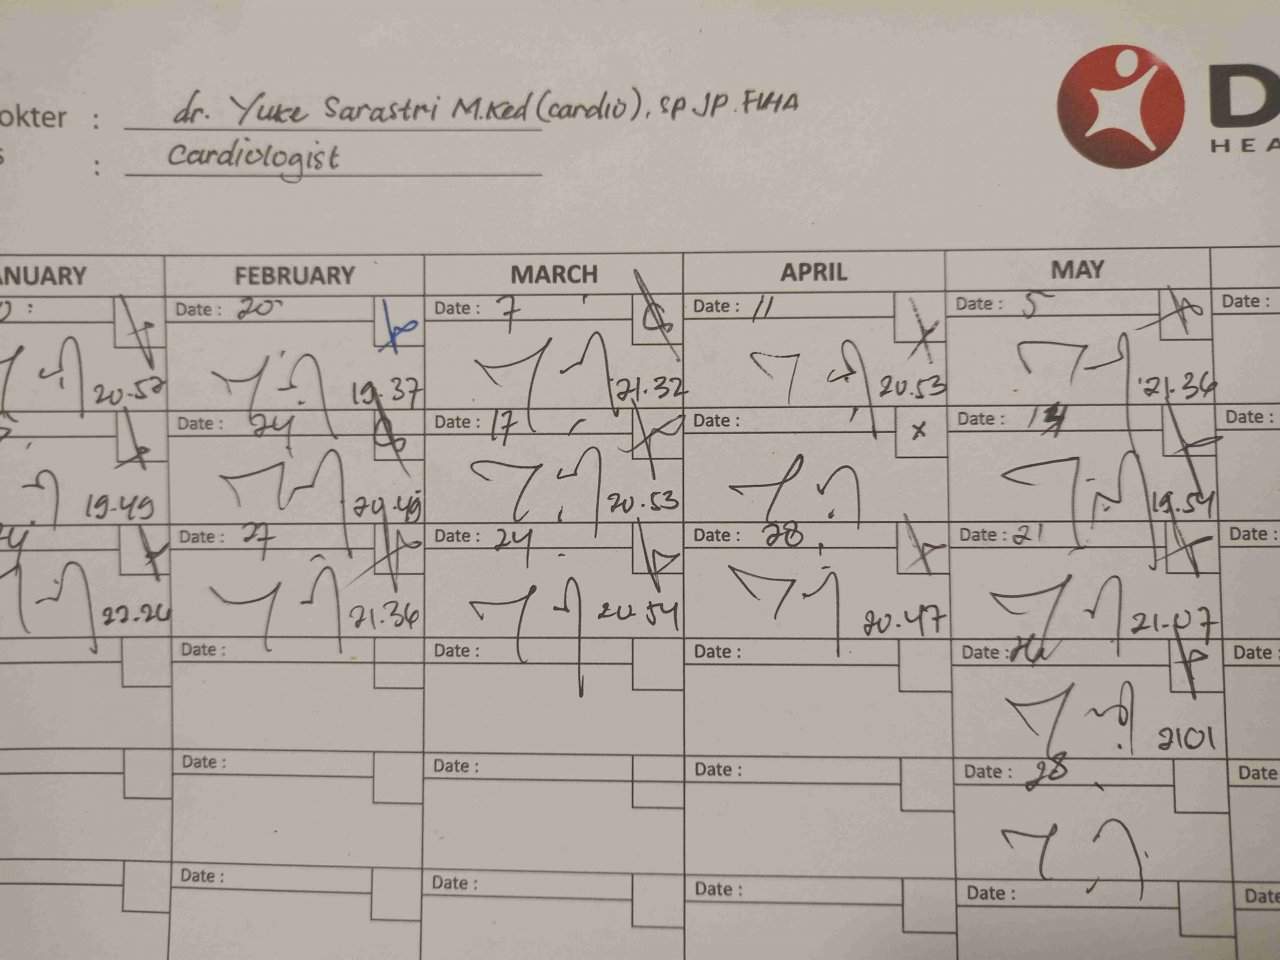 okter : dr. Yuke Sarastri M.Ked (cardio), SP.JP. FIHA
s : Cardiologist
D
HEA
ANUARY FEBRUARY MARCH APRIL MAY
Date : 20 Date : 7 Date : 11 Date : 5 Date :
20.52 19.37 21.32 20.53 21.36
Date : 24 Date : 17 Date : Date :
19.49 20.49 20.53 19.54
24 Date : 27 Date : 24 Date : 28 Date : 21 Date :
22.26 21.36 20.54 20.47 21.07
Date : Date : Date : Date : Date :
2101
Date : Date : Date : Date : 28 Date
Date : Date : Date : Date : Date